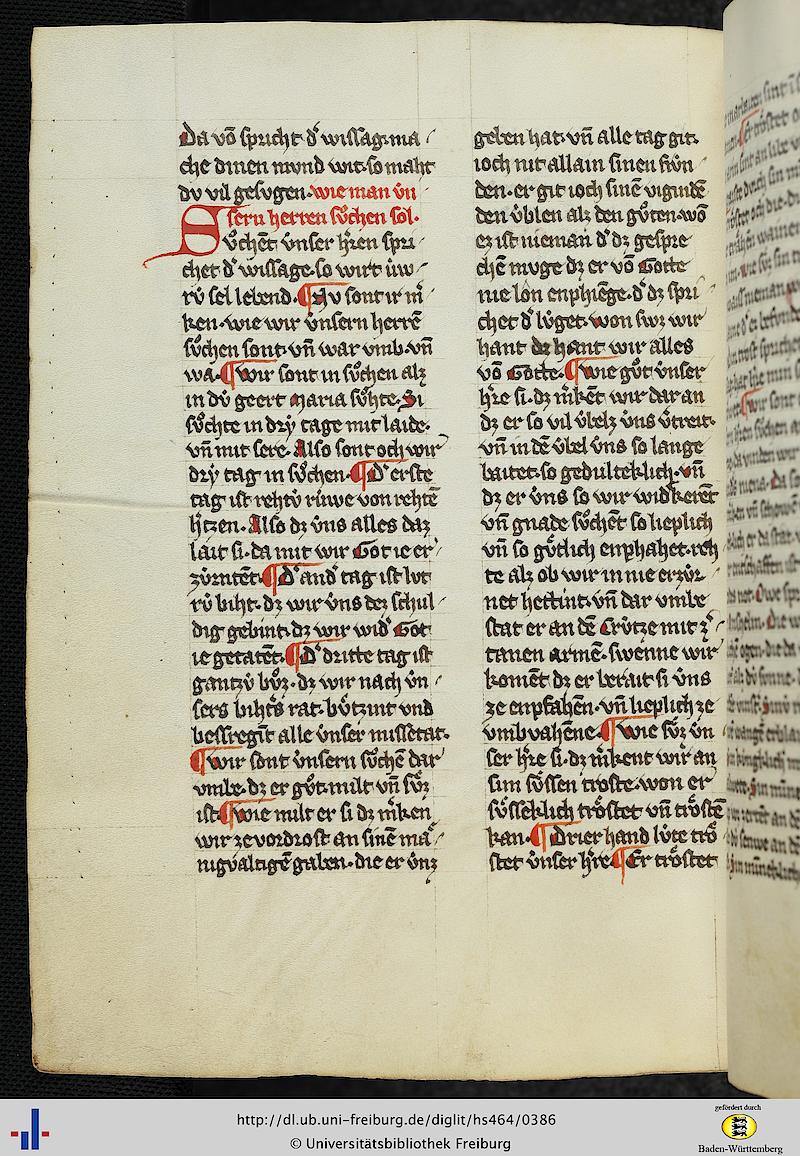 Da vō spricht d͛ wissag·ma
che dinen mvnd wit·so maht
dv vil gesvgen·wie man v̓n
sern herren sv̊chen sol·
Sv̊chēt v̓nser h̓ren spri
chet d͛ wissage·so wirt v̓w
rv̓ sel lebend·¶Nv sont ir m̓
ken·wie wir v̓nsern herrē
sv̊chen sont·vn̄ war vmb·vn̄
wa·¶wir sont in sv̊chen alz
in dv̓ geert maria sv̊hte·Si
sv̊chte in drẏ tage mit laide·
vn̄ mit sere·Also sont och wir
drẏ tag in sv̊chen·¶D͛ erste
tag ist rehtv̓ rúwe von rehtē
h̓tzen·Also dz v̓ns alles daz
lait si·da mit wir Got ie er
zv̓rntēt·¶D͛ and͛ tag ist lvt
rv̓ biht·dz wir v̓ns dez schul
dig gebint·dz wir wid͛ Got
ie getatēt·¶D͛ dritte tag ist
gantzv̓ bv̊z·dz wir nach v̓n
sers biht͛s rat·bv̊tzint vnd
bessregīt alle v̓nser missetat·
¶wir sont v̓nsern sv̊chē dar
vmbe·dz er gv̊t·milt vn̄ sv̊z
ist·¶wie milt er si dz m̓ken
wir zevordrost an sinē ma
nigvaltigē gaben·die er v̓nz
geben hat·vn̄ alle tag git·
ioch nit allain sinen frv̓n
den·er git ioch sinē vigindē
den v̓blen alz den gv̊ten·wō
ez ist nieman d͛ dz gespre
chē mvge dz er vō Gotte
nie lōn enphiēge·d͛ dz spri
chet d͛ lv̓get·won swz wir
hant dz hant wir alles
vō Gotte·¶wie gv̊t v̓nser
h̓re si·dz m̓kēt wir dar an
dz er so vil v̓belz v̓ns v̓treit·
vn̄ in dē v̓bel v̓ns so lange
baitet·so gedulteklich·vn̄
dz er v̓ns so wir wid͛kerēt
vn̄ gnade sv̊chēt so lieplich
vn̄ so gv̊tlich enphahet·reh
te alz ob wir in nie erzv̓r
net hettint·vn̄ dar vmbe
stat er an dē Crv̓tze mit z͛
tanen armē·swenne wir
komēt dz er berait si v̓ns
ze enpfahen·vn̄ lieplich ze
vmbvahēne·¶wie sv̊z v̓n
ser h̓re si·dz m̓kent wir an
sim sv̊ssen troste·won er
sv̊sseklich trȯstet vn̄ trȯstē
kan·¶Drier hand lv̓te trȯ
stet v̓nser h̓re¶Er trȯstet
http://dl.ub.uni-freiburg.de/diglit/hs464/0386
© Universitätsbibliothek Freiburg
gefördert durch
Baden-Württemberg